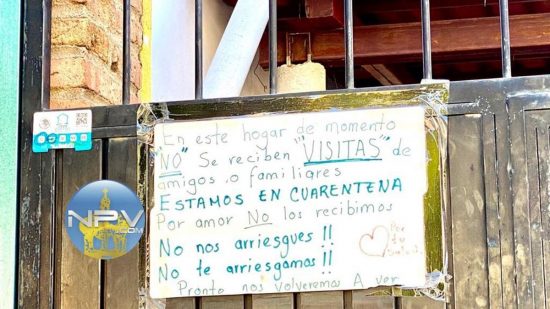 En este hogar de momento
"NO" Se reciben "VISITAS" de
amigos o familiares
ESTAMOS EN CUARENTENA
Por amor NO los recibimos
No nos arriesgues!!
No te arriesgamos!!
Pronto nos volveremos A ver
Por
tu
NPV
.COM